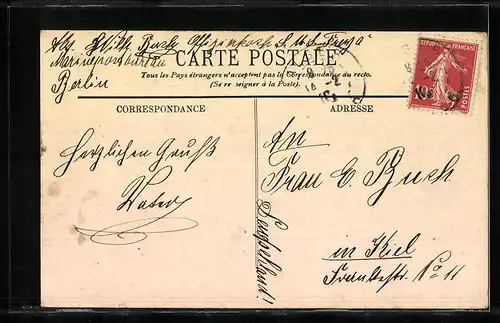 Abs. Wilh. Buch Offizierkoch S.M.S. "Freya"
Marinepostbureau
Berlin
CARTE POSTALE
Tous les Pays étrangers n'acceptent pas la Correspondance au recto.
(Se renseigner à la Poste).
CORRESPONDANCE
ADRESSE
RÉPUBLIQUE FRANÇAISE
POSTES
Herzlichen Gruß
Vater
An
Frau C. Buch
in Kiel
Frankestr. No 11
Deutschland!